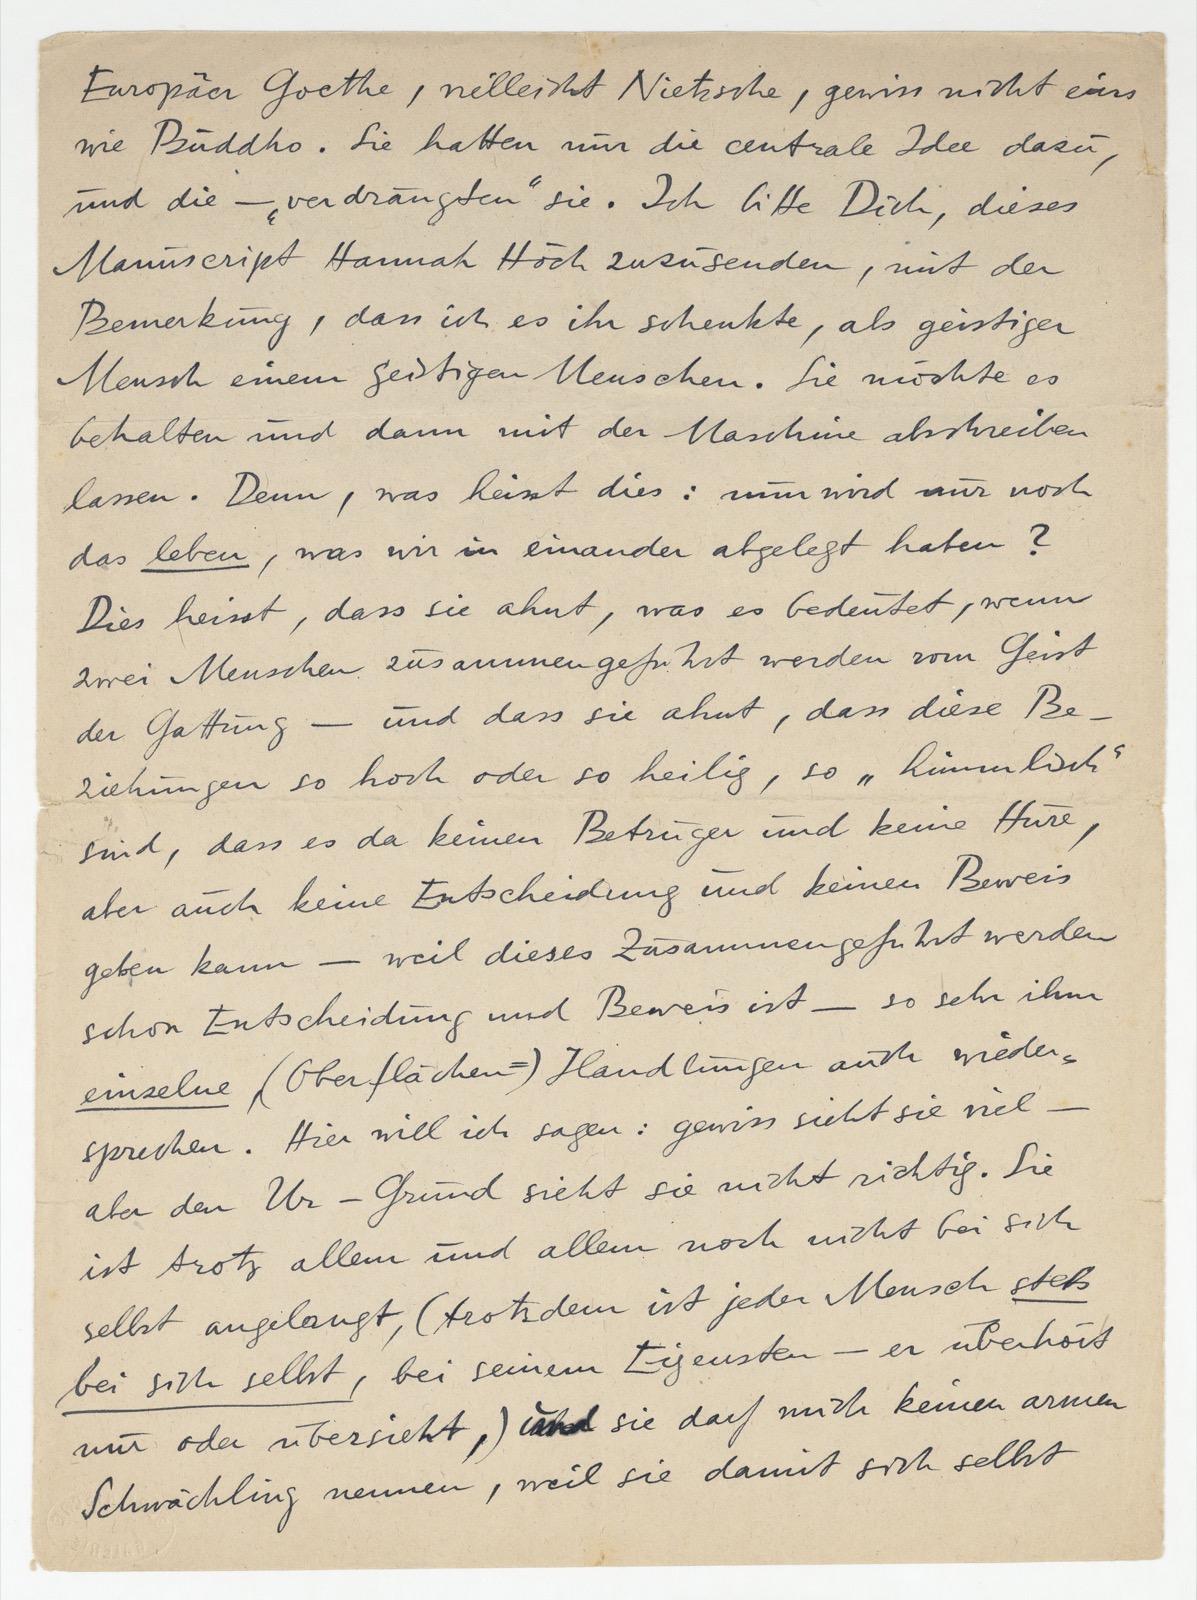 Europäer Goethe, vielleicht Nietzsche, gewiss nicht eins
wie Buddho. Sie hatten nur die centrale Idee dazu,
und die — „verdrängten“ sie. Ich bitte Dich, dieses
Manuscript Hannah Höch zuzusenden, mit der
Bemerkung, dass ich es ihr schenkte, als geistiger
Mensch einem geistigen Menschen. Sie möchte es
behalten und dann mit der Maschine abschreiben
lassen. Denn, was heisst dies: nun wird nur noch
das leben, was wir in einander abgelegt haben?
Dies heisst, dass sie ahnt, was es bedeutet, wenn
zwei Menschen zusammengeführt werden vom Geist
der Gattung — und dass sie ahnt, dass diese Be-
ziehungen so hoch oder so heilig, so „himmlisch“
sind, dass es da keinen Betrüger und keine Hure,
aber auch keine Entscheidung und keinen Beweis
geben kann — weil dieses Zusammengeführt werden
schon Entscheidung und Beweis ist — so sehr ihm
einzelne (Oberflächen=) Handlungen auch wieder=
sprechen. Hier will ich sagen: gewiss sieht sie viel —
aber den Ur-Grund sieht sie nicht richtig. Sie
ist trotz allem und allem noch nicht bei sich
selbst angelangt, (trotzdem ist jeder Mensch stets
bei sich selbst, bei seinem Eigensten — er überhört
nur oder übersieht,) und sie darf mich keinen armen
Schwächling nennen, weil sie damit sich selbst